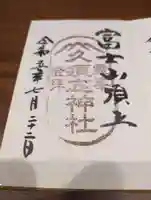 富士山頂上
久須志神社
令和五年七月二十二日